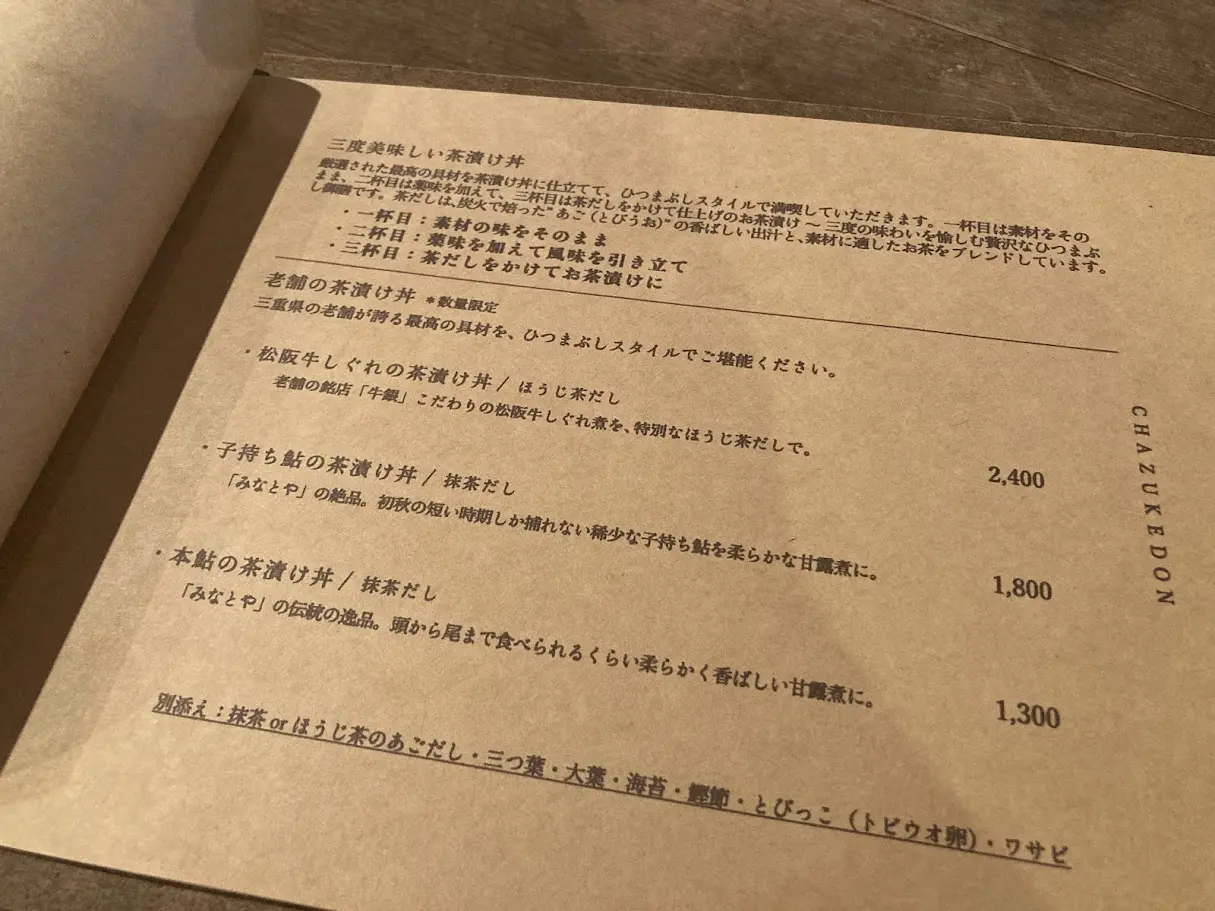 三度美味しい茶漬け丼
厳選された最高の具材を茶漬け丼に仕立てて、ひつまぶしスタイルで満喫していただきます。一杯目は素材をその
まま、二杯目は薬味を加えて、三杯目は茶だしをかけて仕上げのお茶漬け 〜 三度の味わいを愉しむ贅沢なひつまぶ
し御膳です。茶だしは、炭火で焙った"あご(とびうお)"の香ばしい出汁と、素材に適したお茶をブレンドしています。
・一杯目:素材の味をそのまま
・二杯目:薬味を加えて風味を引き立て
・三杯目:茶だしをかけてお茶漬けに
老舗の茶漬け丼 *数量限定
三重県の老舗が誇る最高の具材を、ひつまぶしスタイルでご堪能ください。
・松阪牛しぐれの茶漬け丼 / ほうじ茶だし
老舗の銘店「牛銀」こだわりの松阪牛しぐれ煮を、特別なほうじ茶だしで。
2,400
・子持ち鮎の茶漬け丼 / 抹茶だし
「みなとや」の絶品。初秋の短い時期しか捕れない稀少な子持ち鮎を柔らかな甘露煮に。
1,800
・本鮎の茶漬け丼 / 抹茶だし
「みなとや」の伝統の逸品。頭から尾まで食べられるくらい柔らかく香ばしい甘露煮に。
1,300
別添え:抹茶 or ほうじ茶のあごだし・三つ葉・大葉・海苔・鰹節・とびっこ(トビウオ卵)・ワサビ
CHAZUKEDON